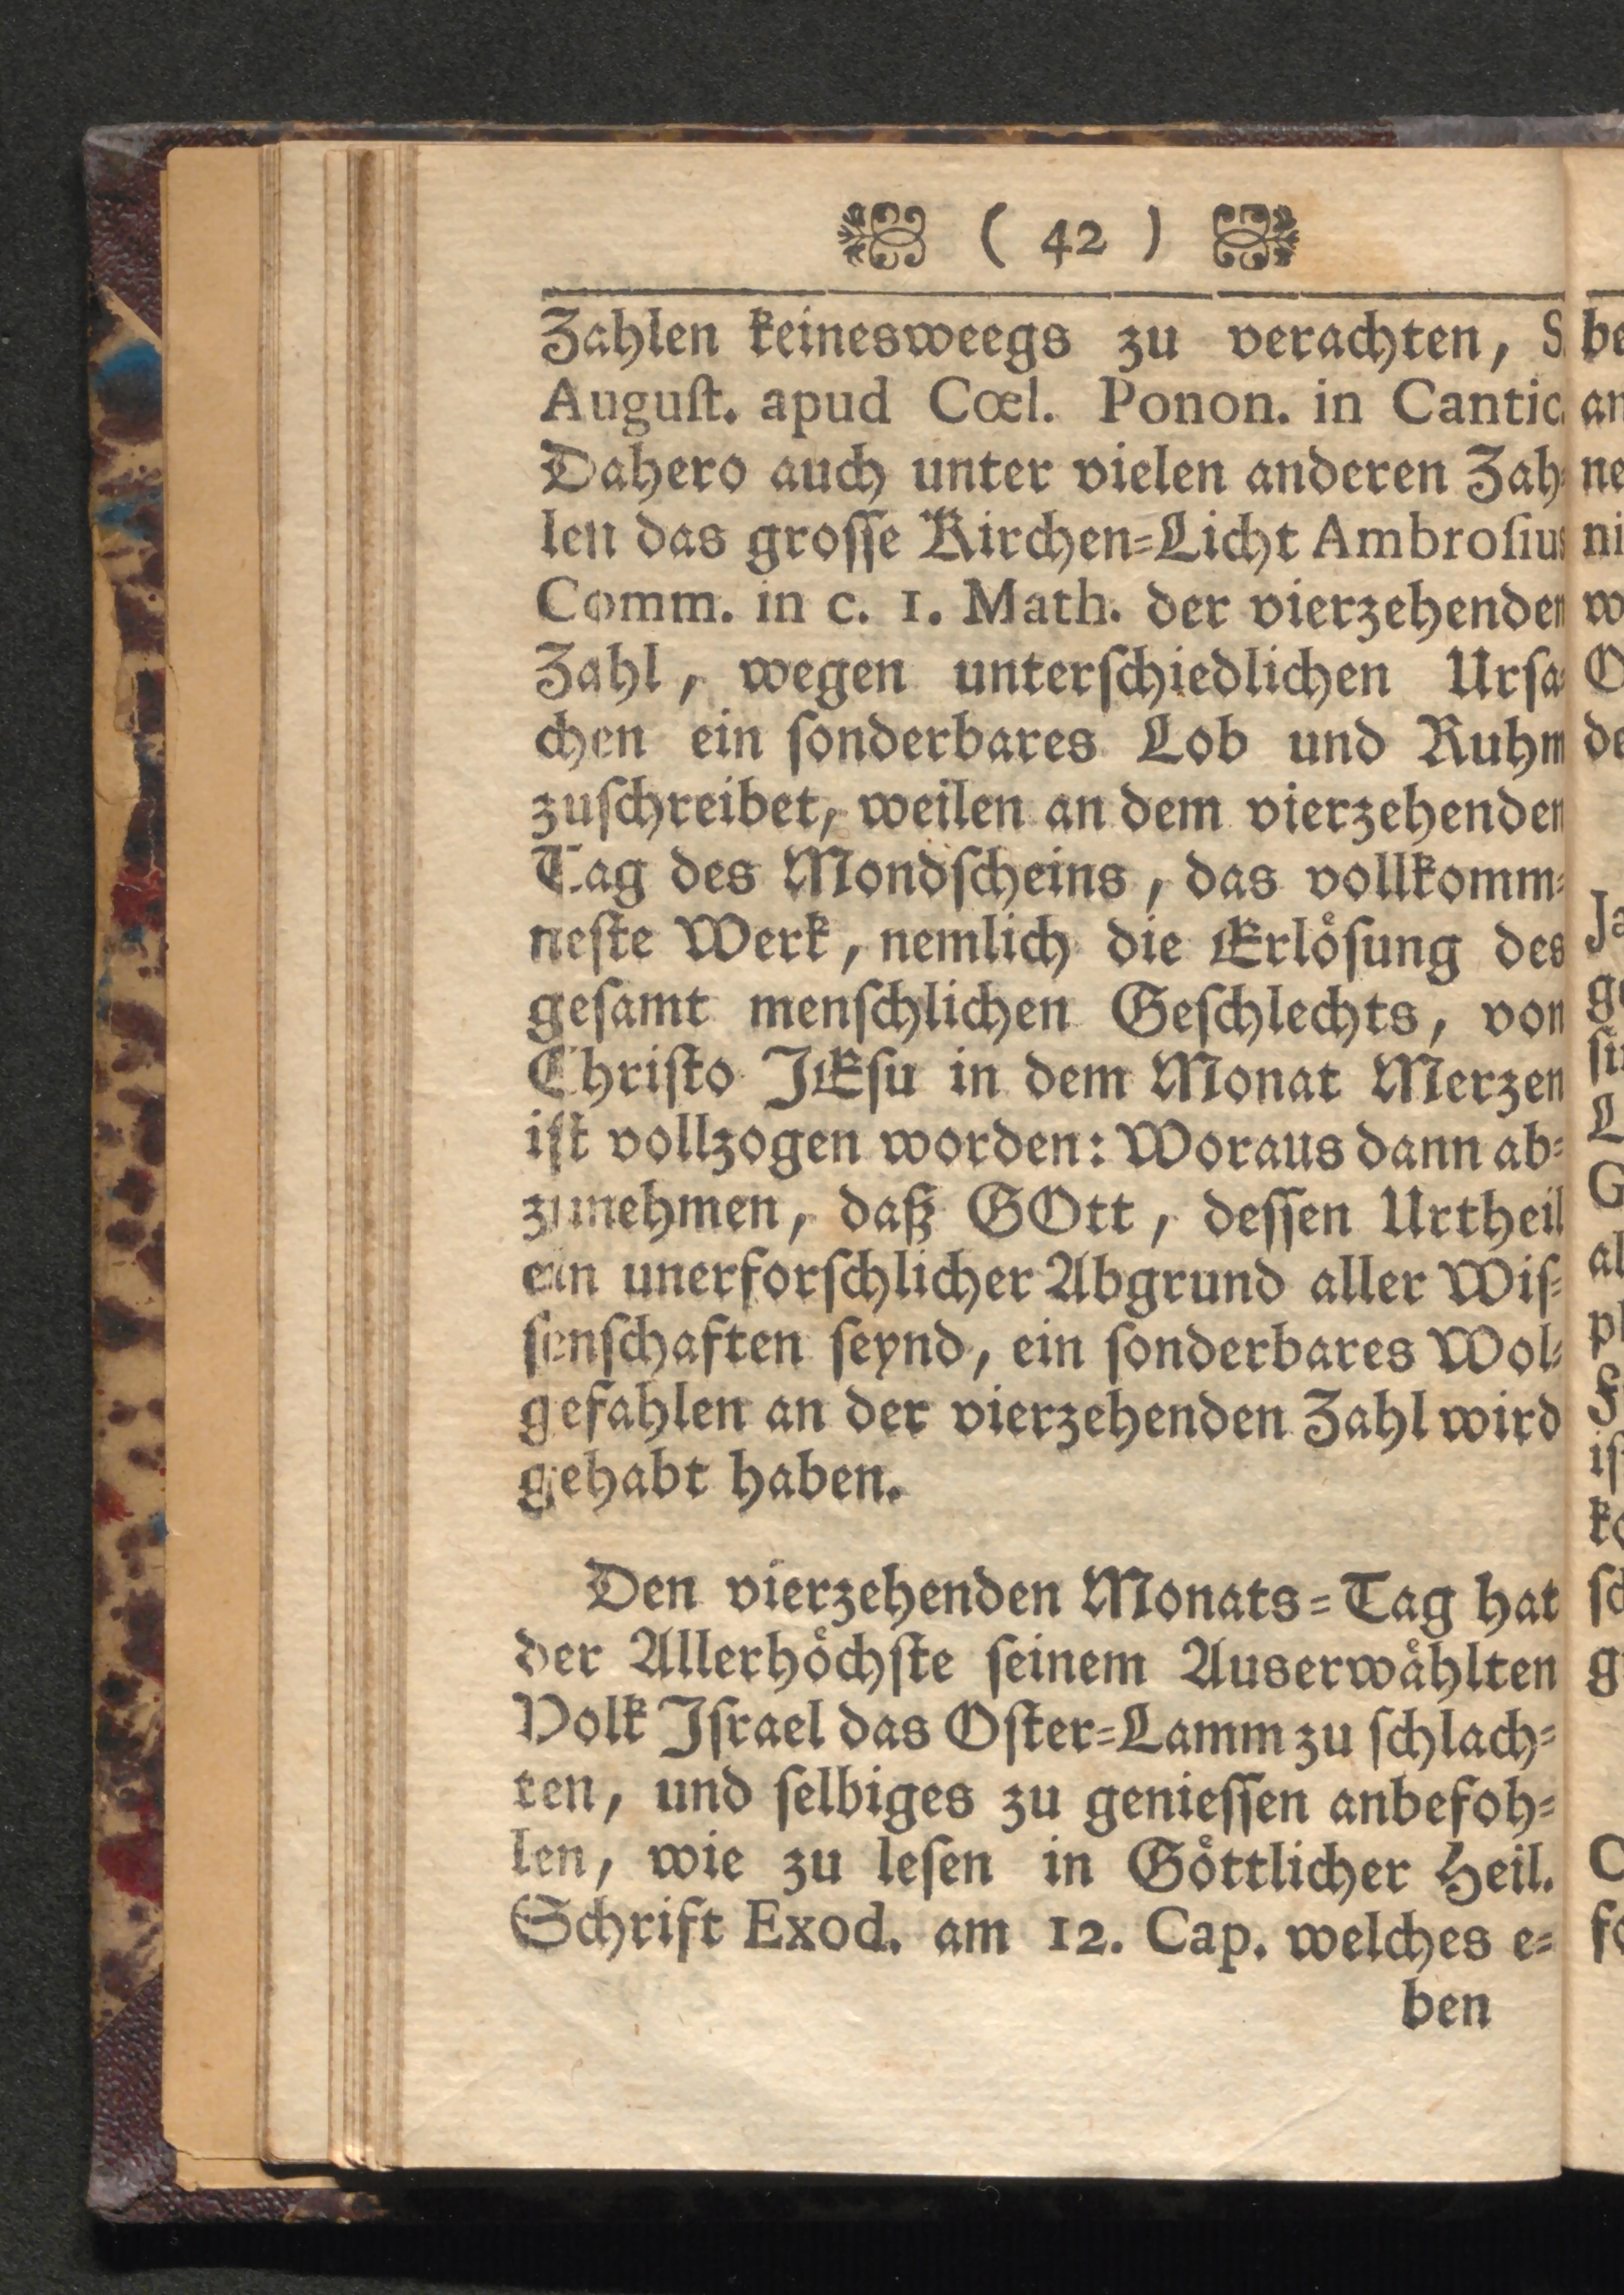 ( 42 )
Zahlen keinesweegs zu verachten, S.
Auguſt. apud Cœl. Ponon. in Cantic.
Dahero auch unter vielen anderen Zah⸗
len das groſſe Kirchen⸗Licht Ambroſius
Comm. in c. 1. Math. der vierzehenden
Zahl, wegen unterſchiedlichen Urſa⸗
chen ein ſonderbares Lob und Ruhm
zuſchreibet, weilen an dem vierzehenden
Tag des Mondſcheins, das vollkomm⸗
neſte Werk, nemlich die Erlöſung des
geſamt menſchlichen Geſchlechts, von
Chriſto JEſu in dem Monat Merzen
iſt vollzogen worden: Woraus dann ab⸗
zunehmen, daß GOtt, deſſen Urtheil
ein unerforſchlicher Abgrund aller Wiſ⸗
ſenſchaften ſeynd, ein ſonderbares Wol⸗
gefahlen an der vierzehenden Zahl wird
gehabt haben.
Den vierzehenden Monats⸗Tag hat
der Allerhöchſte ſeinem Auserwählten
Volk Iſrael das Oſter⸗Lamm zu ſchlach⸗
ten, und ſelbiges zu genieſſen anbefoh⸗
len, wie zu leſen in Göttlicher Heil.
Schrift Exod. am 12. Cap. welches e⸗
ben